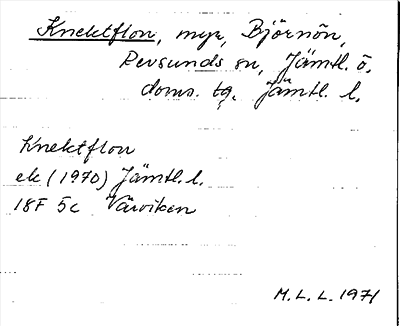 Knektflon, myr, Björnön,
Revsunds sn, Jämtl. ö.
doms. tg. Jämtl. l.
Knektflon
ek (1970) Jämtl. l.
18F 5c Värviken
M. L. L. 1971